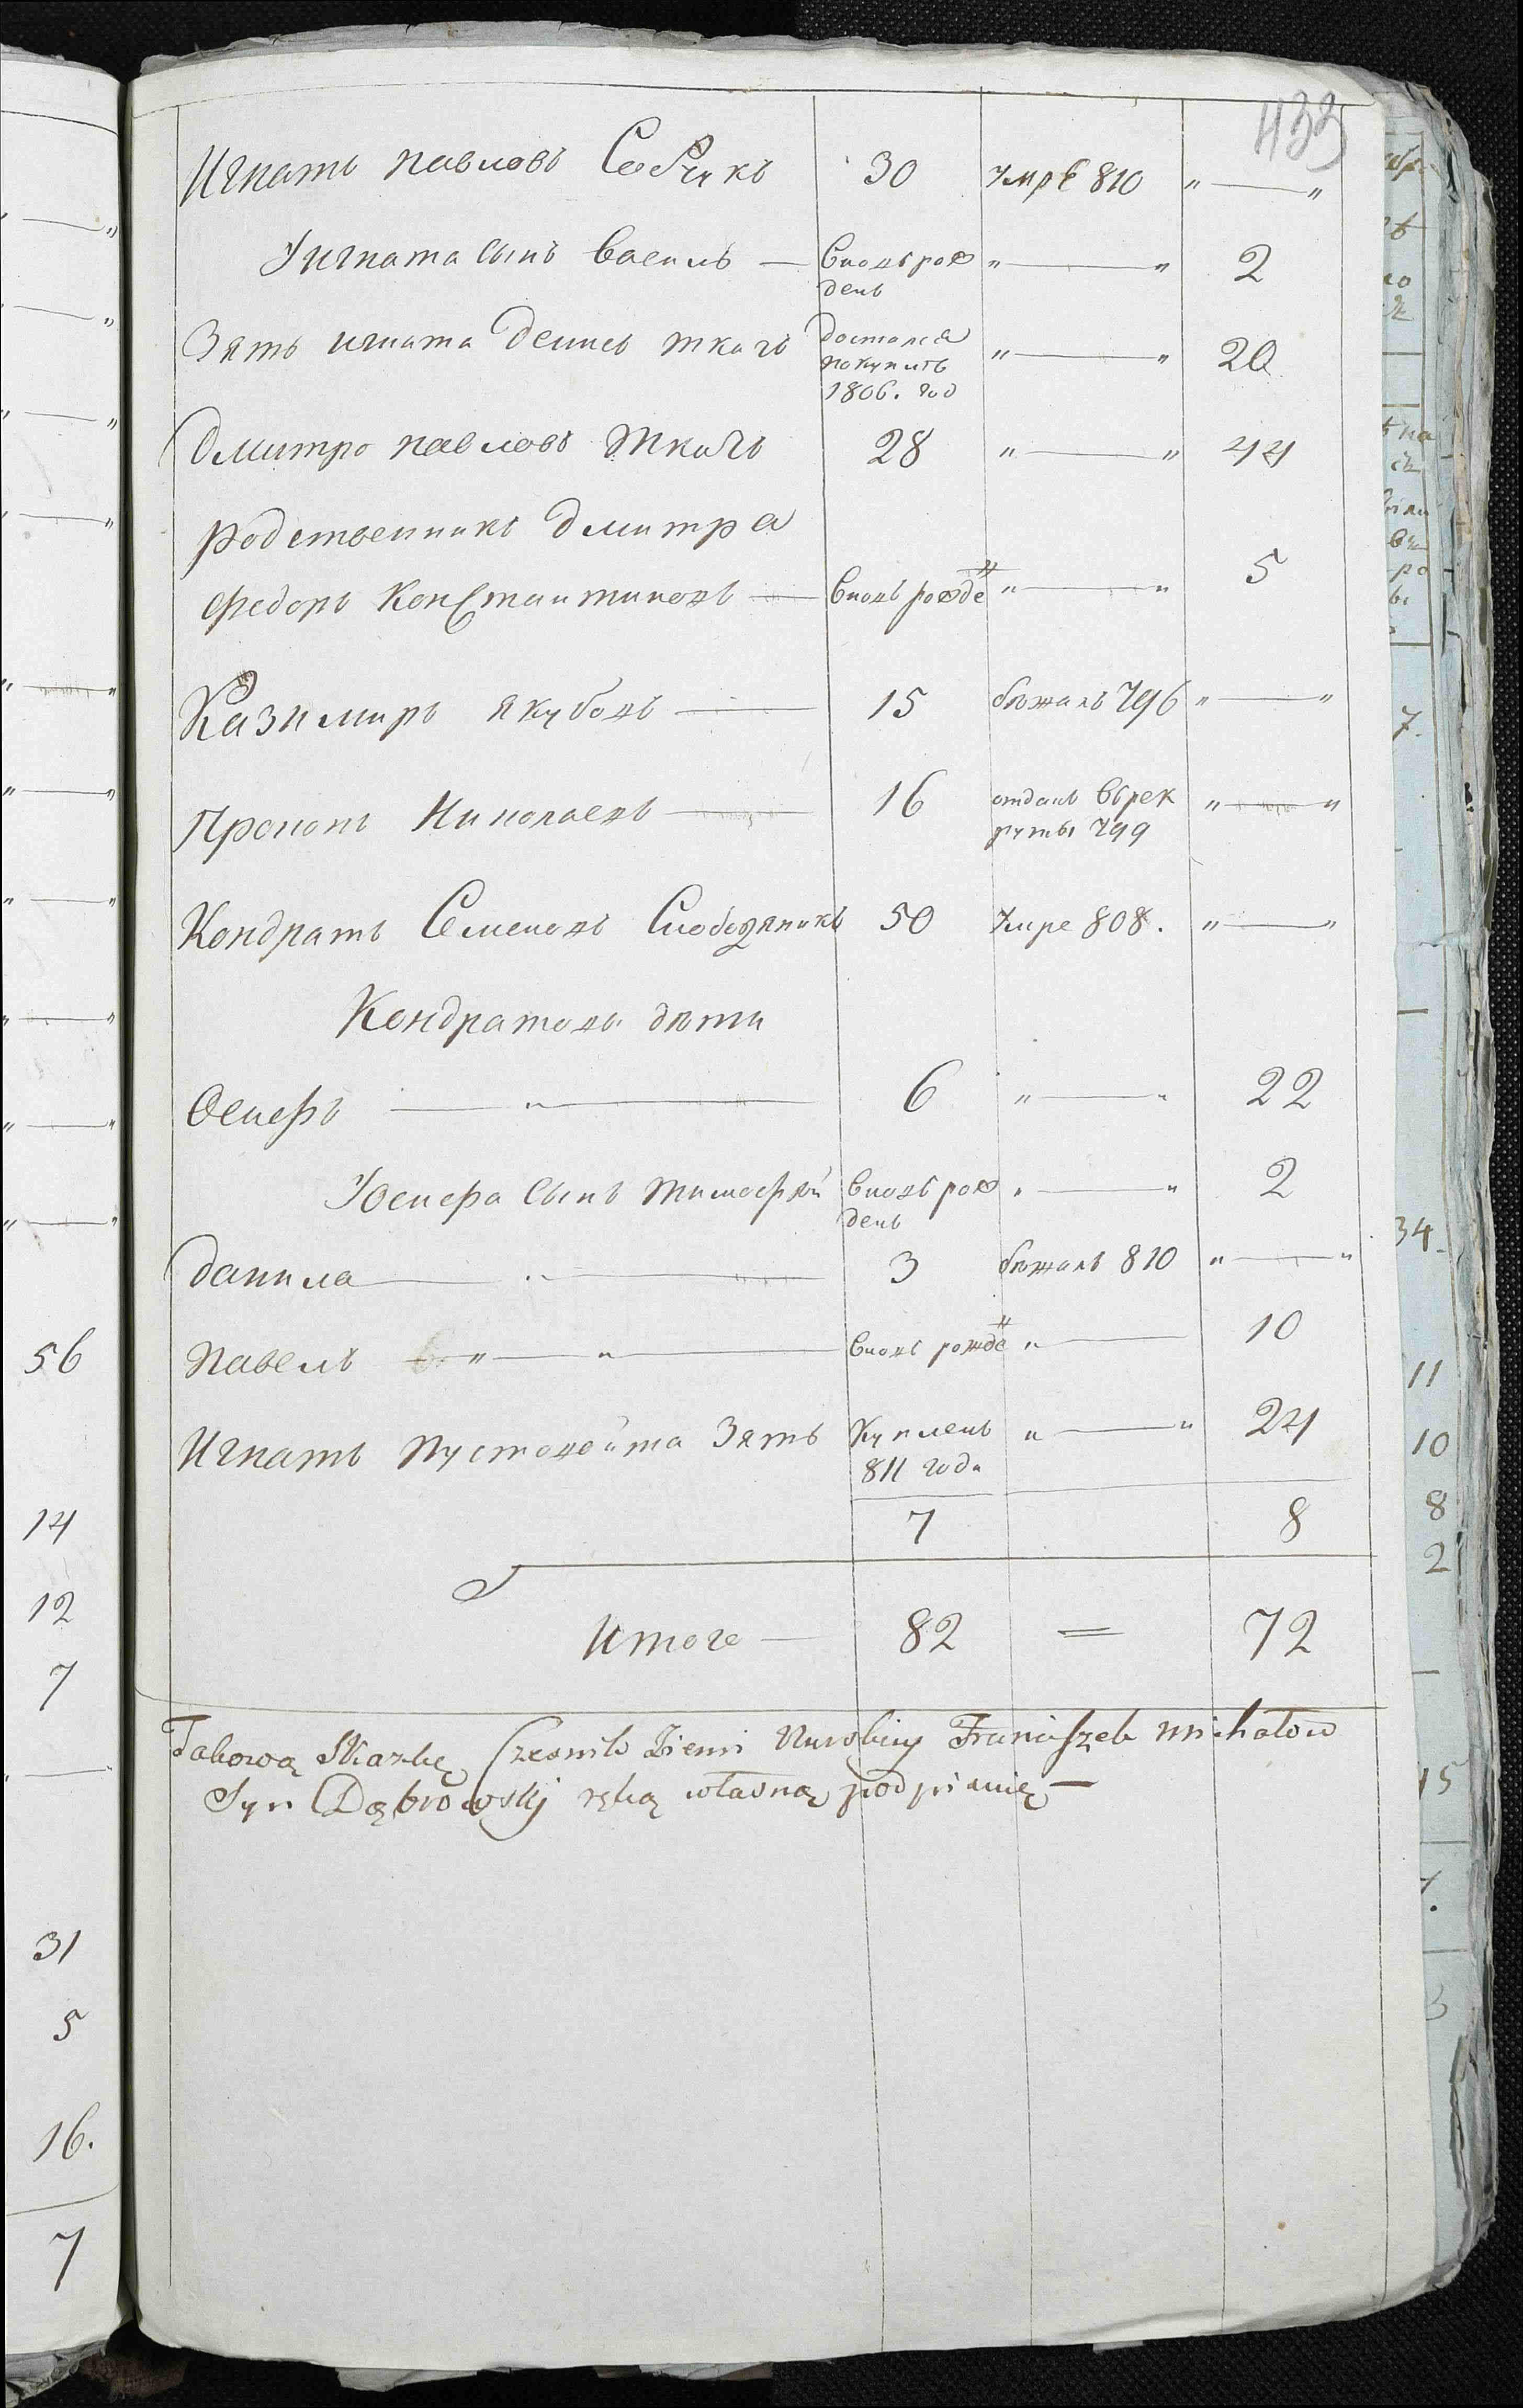 433
Игнатъ павловъ Собчукъ 30 Умрѣ 810 „ — „
У игната сынъ василь — вновь рож „ — „ 2
денъ
Зять игната денисъ ткачъ достался „ — „ 20
покупить
1806. год
Дмитро павловъ ткачъ 28 „ — „ 44
родственникъ дмитра
федоръ Константиновъ — вновь рожде н „ — „ 5
Казимиръ якубовъ — 15 бѣжалъ 796 „ — „
Прокопъ Николаевъ — 16 отданъ въ рек „ — „
руты 799
Кондратъ Семеновъ Слободяникъ 50 Умре 808. „ — „
Кондратовы дѣти
Осипъ — „ — 6 „ — „ 22
У осипа сынъ тимофѣй вновь рож „ — „ 2
денъ
данила — „ — 3 бѣжалъ 810 „ — „
павелъ — „ — „ — вновь рожде н „ — 10
Игнатъ пустовойта Зять Купленъ „ — „ 24
811 года
7 8
Итого — 82 = 72
Takową Skazkę Czesnik Ziemi Nurskiey Franciszek Michałow
Syn Dąbrowskj ręką własną podpisuię —
56
14
12
7
31
5
16.
7
7.
34.
11
10
8
2
15